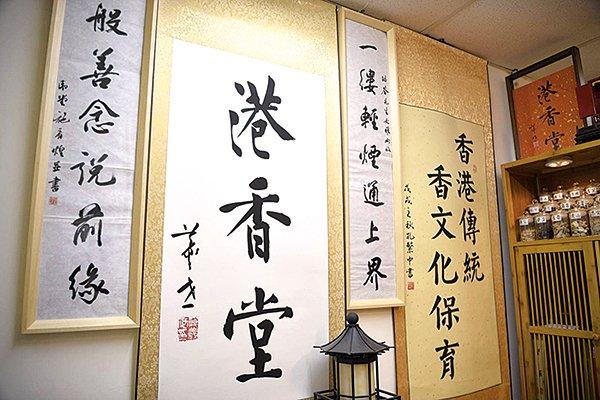 港香堂
香港傳統
香文化保育
一縷輕煙通上界
港香堂
般善念說前緣